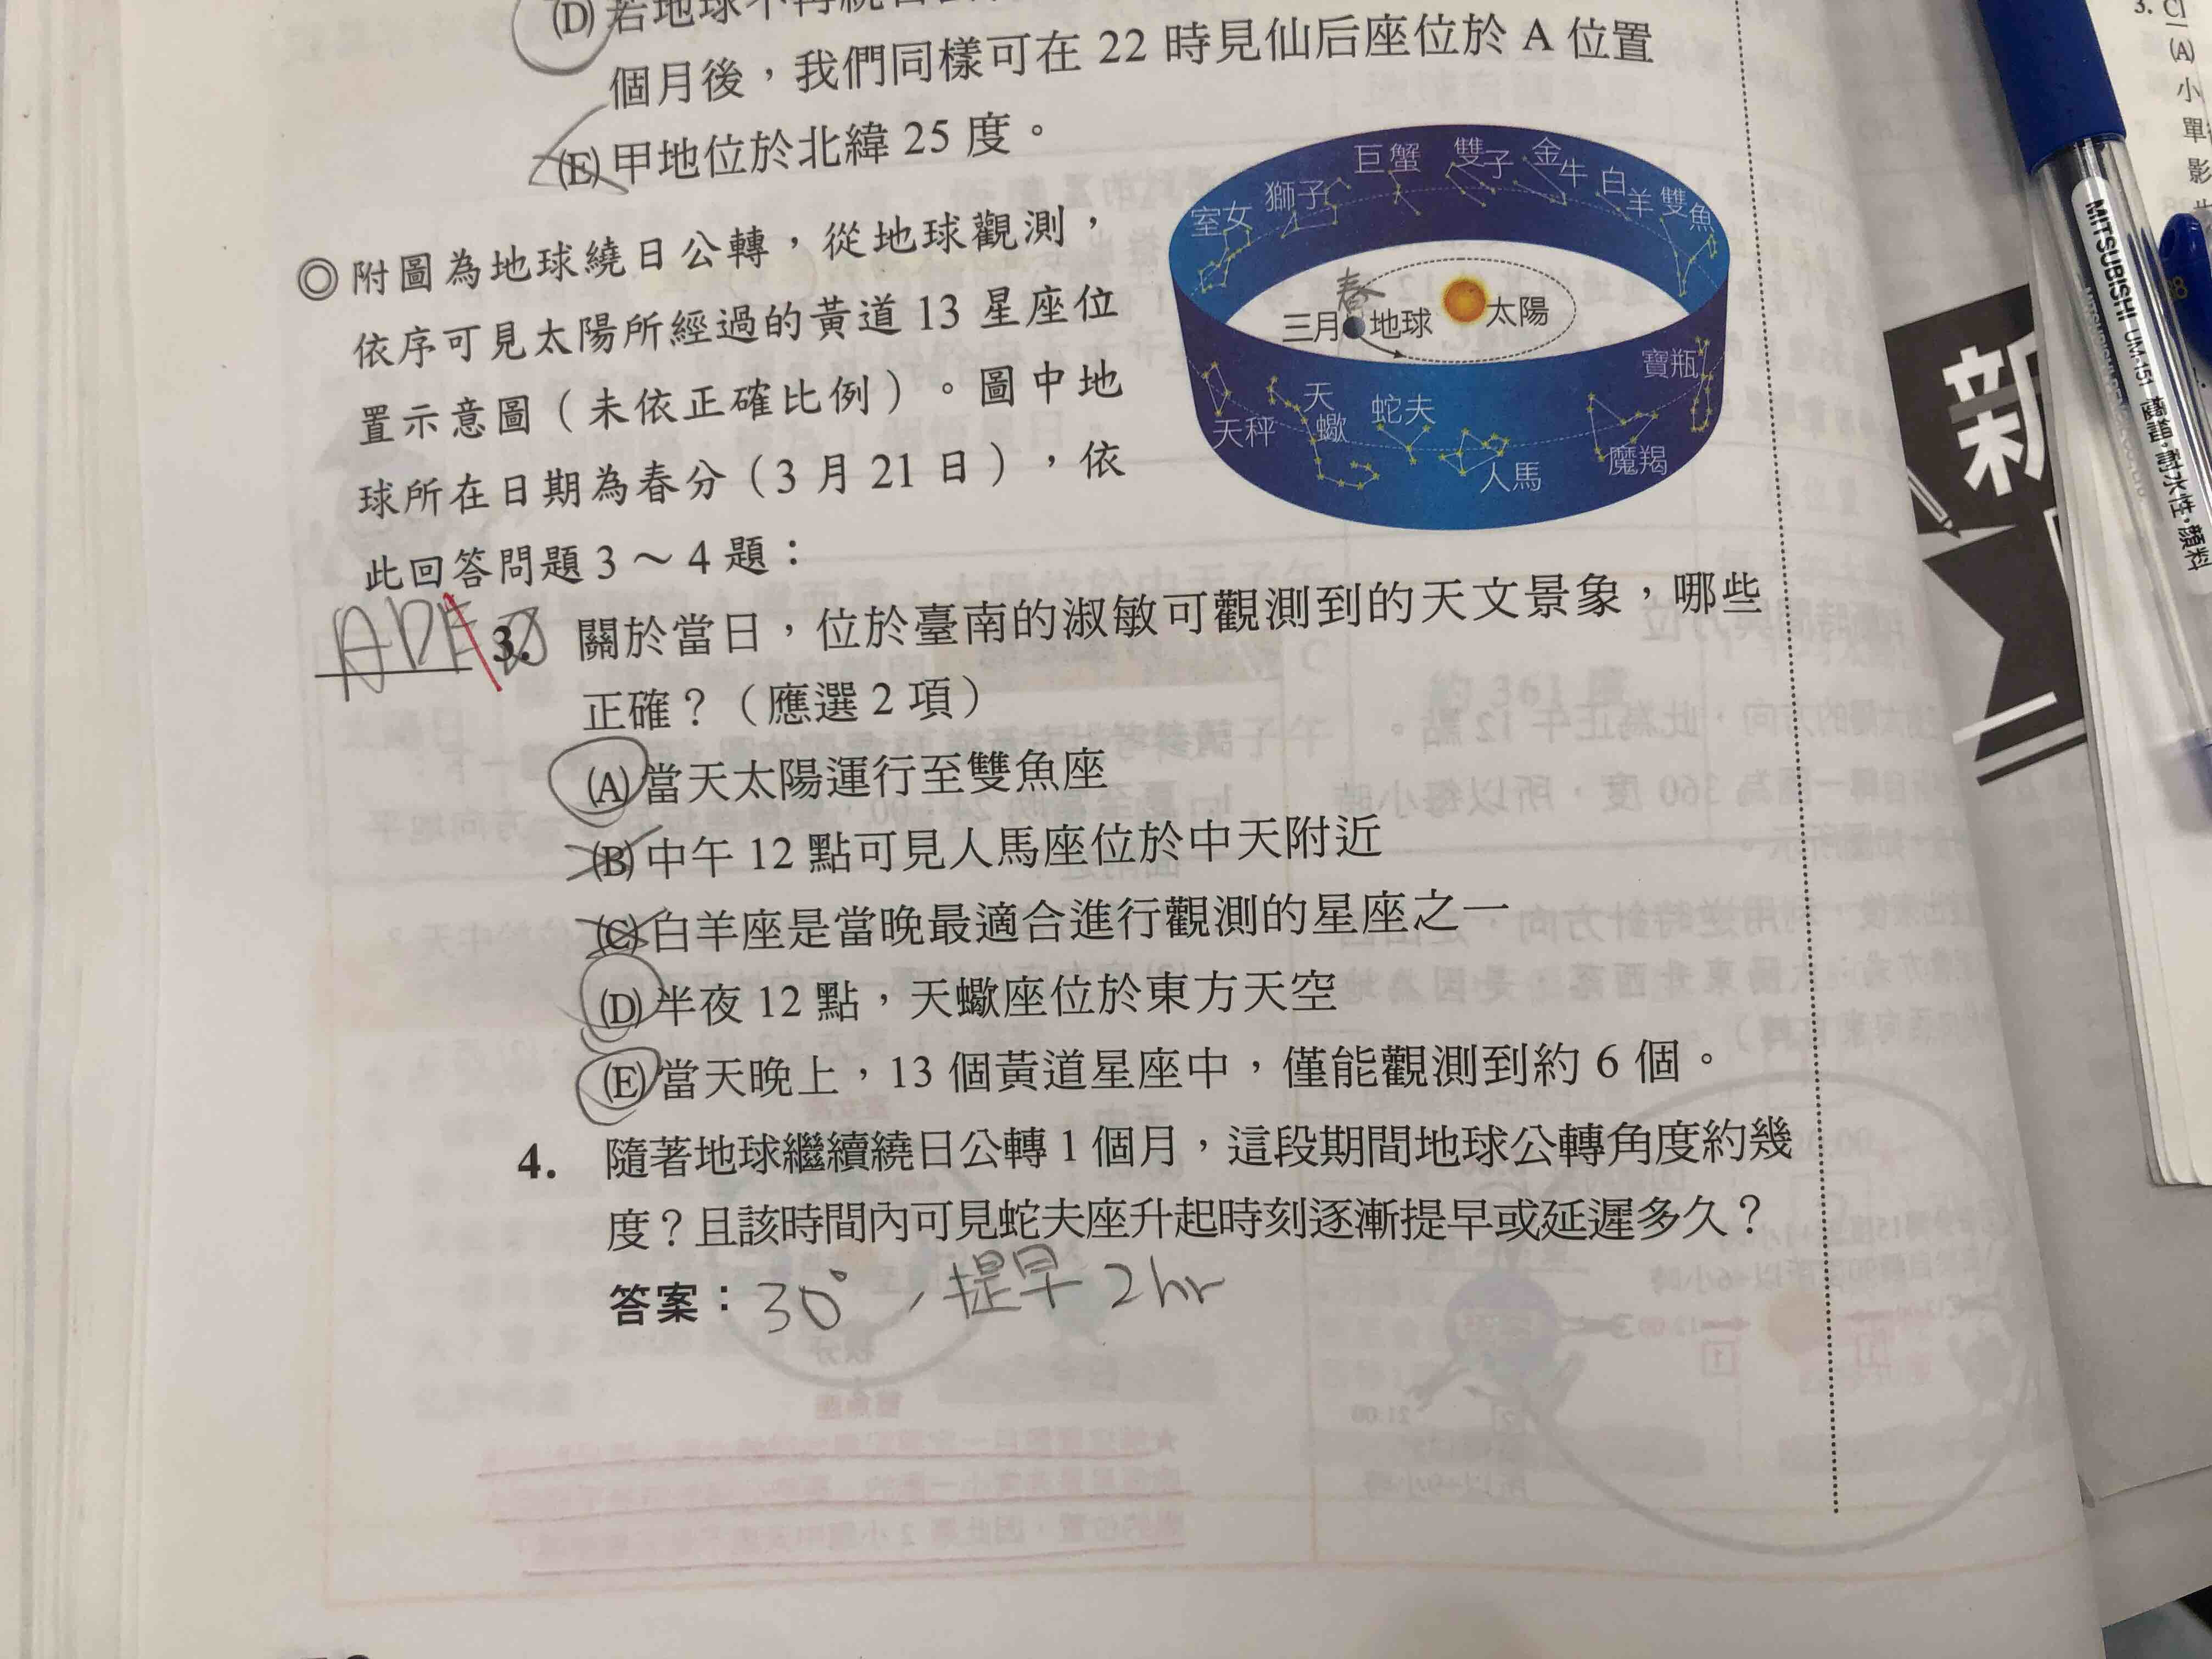 (D) 若地球不再繞日公
個月後，我們同樣可在 22 時見仙后座位於 A 位置
(E) 甲地位於北緯 25 度。
◎ 附圖為地球繞日公轉，從地球觀測，
依序可見太陽所經過的黃道 13 星座位
置示意圖（未依正確比例）。圖中地
球所在日期為春分（3 月 21 日），依
此回答問題 3～4 題：
室女
獅子
巨蟹
雙子
金牛
白羊
雙魚
春
三月
地球
太陽
寶瓶
天秤
天蠍
蛇夫
人馬
魔羯
ADE 3. 關於當日，位於臺南的淑敏可觀測到的天文景象，哪些
正確？（應選 2 項）
(A) 當天太陽運行至雙魚座
(B) 中午 12 點可見人馬座位於中天附近
(C) 白羊座是當晚最適合進行觀測的星座之一
(D) 半夜 12 點，天蠍座位於東方天空
(E) 當天晚上，13 個黃道星座中，僅能觀測到約 6 個。
4. 隨著地球繼續繞日公轉 1 個月，這段期間地球公轉角度約幾
度？且該時間內可見蛇夫座升起時刻逐漸提早或延遲多久？
答案：30°，提早 2hr
新
MITSUBISHI UM-151 極細・耐水性・顏料
3. Cl
(A)
小
單
影